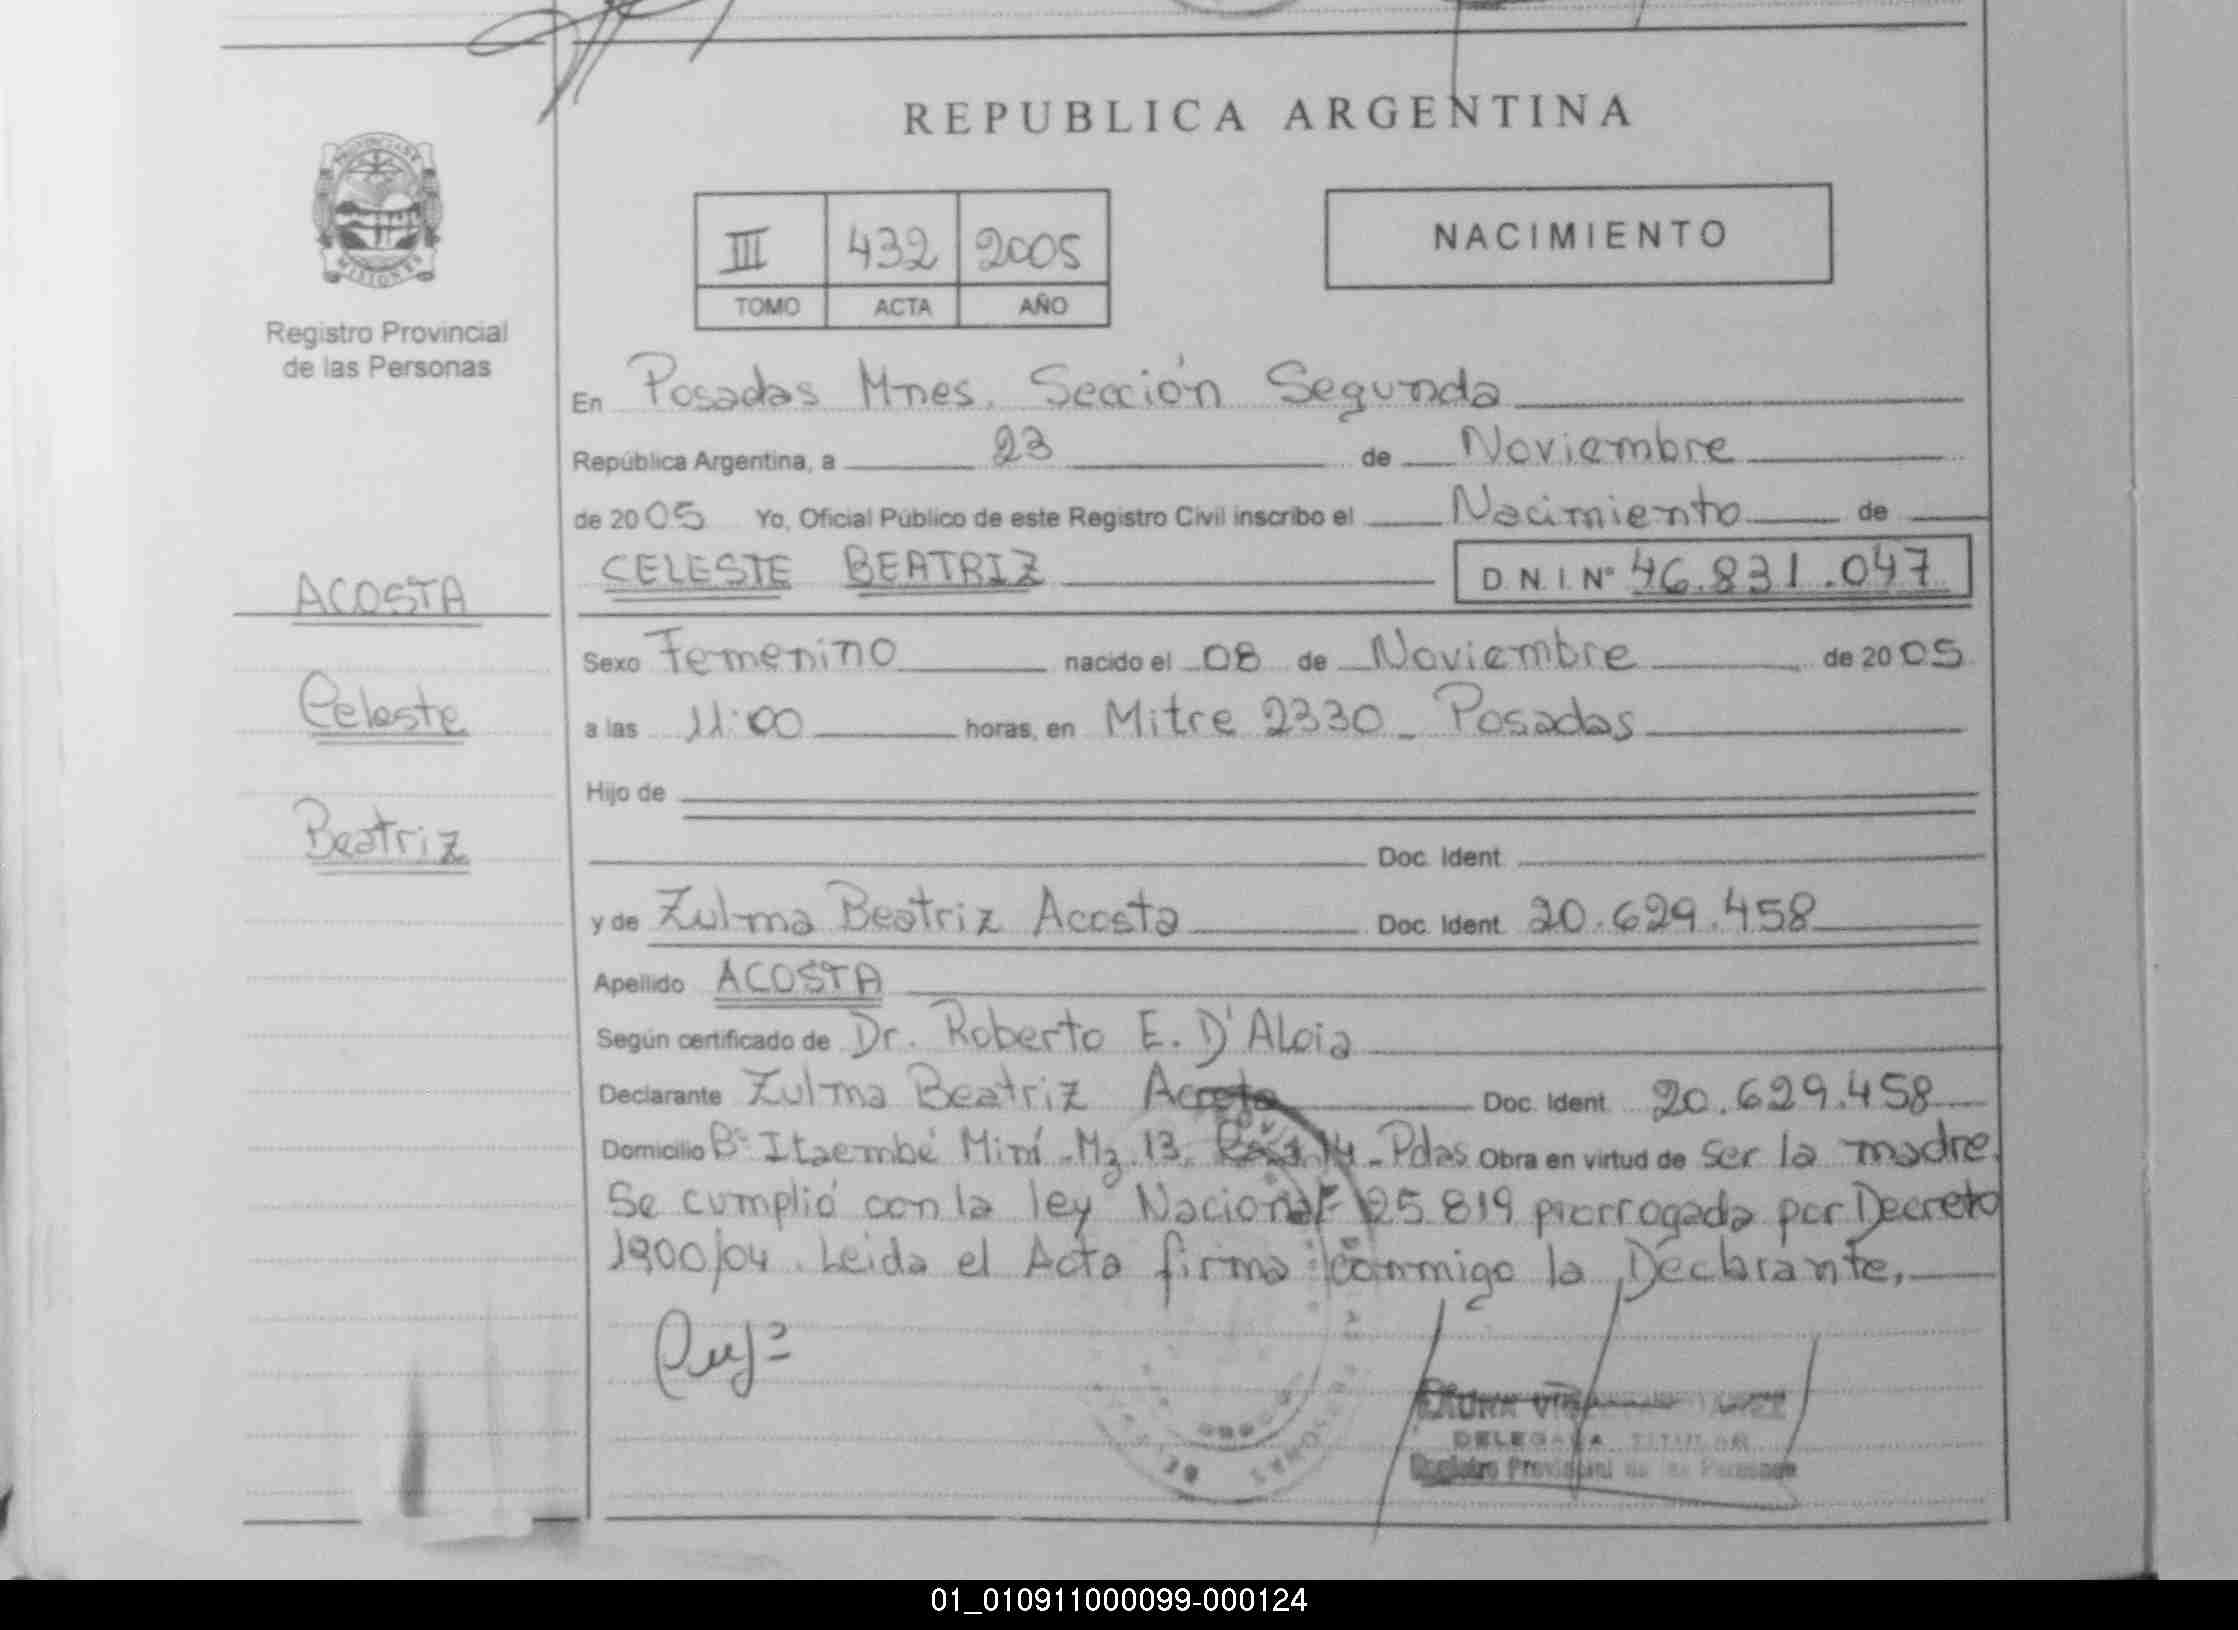 REPUBLICA ARGENTINA
PROVINCIA DE
MISIONES
Registro Provincial
de las Personas
III 432 2005
TOMO ACTA AÑO
NACIMIENTO
En Posadas Mnes. Sección Segunda
República Argentina, a 23 de Noviembre
de 2005 Yo, Oficial Público de este Registro Civil inscribo el Nacimiento de
CELESTE BEATRIZ D.N.I. Nº 46.831.047
ACOSTA
Celeste
Beatriz
Sexo Femenino nacido el 08 de Noviembre de 2005
a las 11:00 horas, en Mitre 2330 - Posadas
Hijo de
Doc. Ident.
y de Zulma Beatriz Acosta Doc. Ident. 20.629.458
Apellido ACOSTA
Según certificado de Dr. Roberto E. D'Aloia
Declarante Zulma Beatriz Acosta Doc. Ident. 20.629.458
Domicilio Bº Itaembé Miní - Mz. 13, 14 - Pdas Obra en virtud de ser la madre.
Se cumplió con la ley Nacional 25.819 prorrogada por Decreto
1900/04. Leida el Acta firma conmigo la Declarante,
DELEGADA TITULAR
Registro Provincial de las Personas
01_010911000099-000124